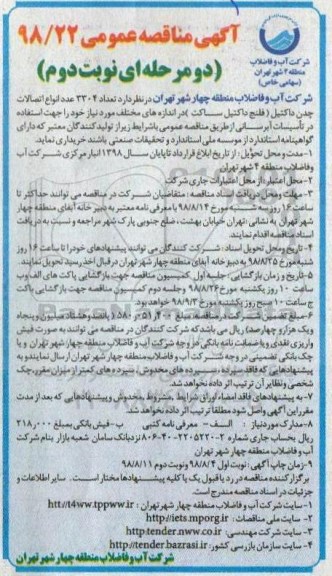 آگهی مناقصه عمومی ۹۸/۲۲
(دو مرحله ای نوبت دوم)
شرکت آب و فاضلاب
منطقه ۴ شهر تهران
(سهامی خاص)
شرکت آب و فاضلاب منطقه چهار شهر تهران در نظر دارد تعداد ۳۳۰۴ عدد انواع اتصالات
چدن داکتیل (فلنج داکتیل ساکت) در اندازه های مختلف مورد نیاز خود را جهت استفاده
در تأسیسات آبرسانی از طریق مناقصه عمومی با شرایط زیر از تولید کنندگان معتبر که دارای
گواهینامه استاندارد از موسسه ملی استاندارد و تحقیقات صنعتی باشند خریداری نماید.
۱- مدت و محل تحویل: از تاریخ ابلاغ قرارداد تا پایان سال ۱۳۹۸ انبار مرکزی شرکت آب
وفاضلاب منطقه ۴ شهر تهران
۲- محل اعتبار: از محل اعتبارات جاری شرکت
۳- مهلت ومحل دریافت اسناد مناقصه: متقاضیان شرکت در مناقصه می توانند حداکثر تا
ساعت ۱۶ روز سه شنبه مورخ ۹۸/۸/۱۴ با معرفی نامه معتبر به دبیرخانه آبفای منطقه چهار
شهر تهران به نشانی: تهران خیابان بهشت، ضلع جنوبی پارک شهر مراجعه و نسبت به دریافت
اسناد مناقصه اقدام نمایند.
۴- تاریخ ومحل تحویل اسناد: شرکت کنندگان می توانند پیشنهادهای خود را تا ساعت ۱۶ روز
شنبه مورخ ۹۸/۸/۲۵ به دبیرخانه آبفای منطقه چهار شهر تهران در قبال اخذ رسید تحویل نمایند.
۵- تاریخ و زمان بازگشایی: جلسه اول کمیسیون مناقصه جهت بازگشایی پاکت های الف و ب
ساعت ۱۰ روز یکشنبه مورخ ۹۸/۸/۲۶ و جلسه دوم کمیسیون مناقصه جهت بازگشایی پاکت
ج ساعت ۱۰ صبح روز یکشنبه مورخ ۹۸/۹/۳ خواهد بود.
۶- مبلغ تضمین شرکت در مناقصه: مبلغ ۵۸۰/۰۵۱/۴۰۰ (پانصد و هشتاد میلیون و پنجاه
و یک هزار و چهارصد) ریال می باشد که شرکت کنندگان در مناقصه می توانند به صورت فیش
واریزی نقدی ویا ضمانت نامه بانکی در وجه شرکت آب و فاضلاب منطقه چهار شهر تهران و یا
چک بانکی تضمینی در وجه شرکت آب و فاضلاب منطقه چهار شهر تهران ارسال نمایند به
پیشنهادهایی که فاقد سپرده، سپرده های مخدوش، سپرده های کمتر از میزان مقرر، چک
شخصی و نظایر آن ترتیب اثر داده نخواهد شد.
۷- به پیشنهادهای فاقد امضاء اوراق شرایط، مشروط، مخدوش و پیشنهادهایی که بعد از مدت
مقرر این آگهی واصل شود مطلقا ترتیب اثر داده نخواهد شد.
۸- مدارک مورد نیاز: الف- معرفی نامه کتبی ب- فیش بانکی بمبلغ ۲۱۸٫۰۰۰
ریال بحساب جاری شماره نزد بانک سامان شعبه بازار بنام شرکت
آب و فاضلاب منطقه چهار شهر تهران
۹- زمان چاپ آگهی: نوبت اول ۹۸/۸/۴ و نوبت دوم ۹۸/۸/۱۱
برگزار کننده مناقصه در رد یا قبول یک یا کلیه پیشنهادها مختار است. سایر اطلاعات و
جزئیات در اسناد مناقصه مندرج است.
۱- سایت شرکت آب و فاضلاب منطقه چهار شهر تهران: htt://t4ww.tppww.ir
۲- سایت ملی مناقصات: http://iets.mporg.ir
۳- سایت شرکت مهندسی: http:tender.nww.co.ir
۴- سایت سازمان بازرسی کشور: http://tender.bazrasi.ir
شرکت آب و فاضلاب منطقه چهار شهر تهران